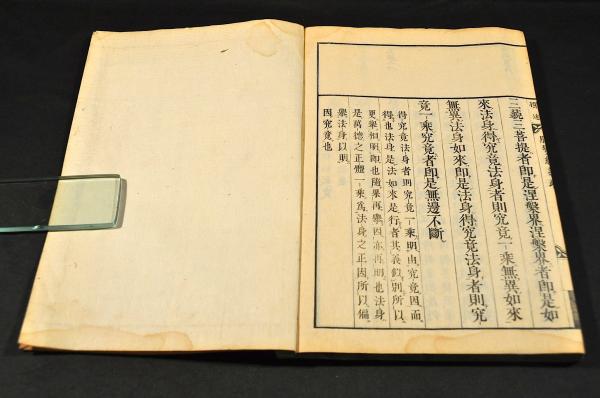 三藐三菩提者即是涅槃界涅槃界者即是如
來法身得究竟法身者則究竟一乘無異如來
無異法身如來即是法身得究竟法身者則究
竟一乘究竟者即是無邊不斷
得究竟法身者則究竟一乘明由究竟因而
得也法身是法如來是行者其義似別所以
更擧恒明卽也隨果再擧因亦再明也法身
是萬德之正體一乘爲法身之正因所以偏
擧法身以明
因究竟也